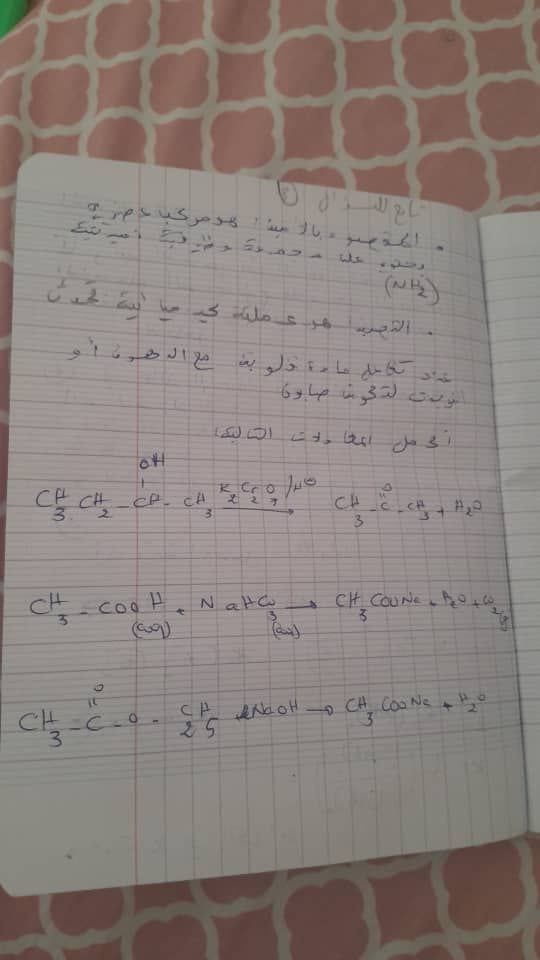 تابع السؤال
المقصود بالأمينة: هو مركب عضوي
يحتوي على مجموعة وظيفية أمينية
(NH2)
• التصبن هو عملية كيميائية تحدث
عند تفاعل مادة قلوية مع الدهون أو
الزيوت لتكوين صابون
أكمل المعادلات التالية:
OH
CH3 CH2 - CH - CH3 K2Cr2O7/H⊕ → CH3 - C - CH3 + H2O
O
CH3 - COOH + NaHCO3 → CH3COONa + H2O + CO2(g)
(aq) (aq)
O
CH3 - C - O - C2H5 + NaOH → CH3COONa + H2O